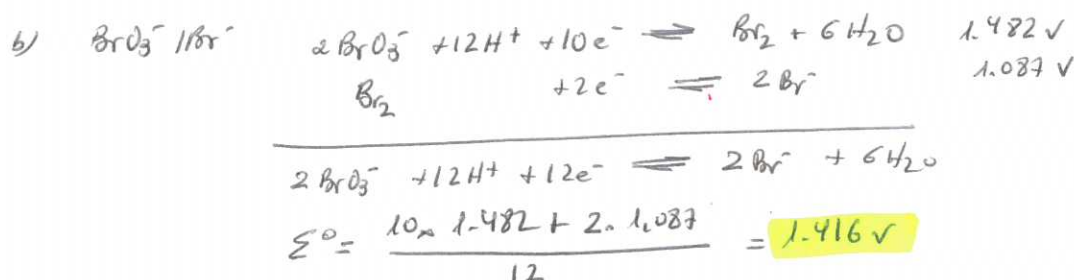 b) BrO3⁻ //Br⁻ 2 BrO3⁻ +12H⁺ +10e⁻ ⇌ Br2 + 6H2O 1.482 V
Br2 +2e⁻ ⇌ 2 Br⁻ 1.087 V
2 BrO3⁻ +12H⁺ +12e⁻ ⇌ 2 Br⁻ + 6H2O
Σ° = (10x 1.482 + 2. 1.087) / 12 = 1.416 V